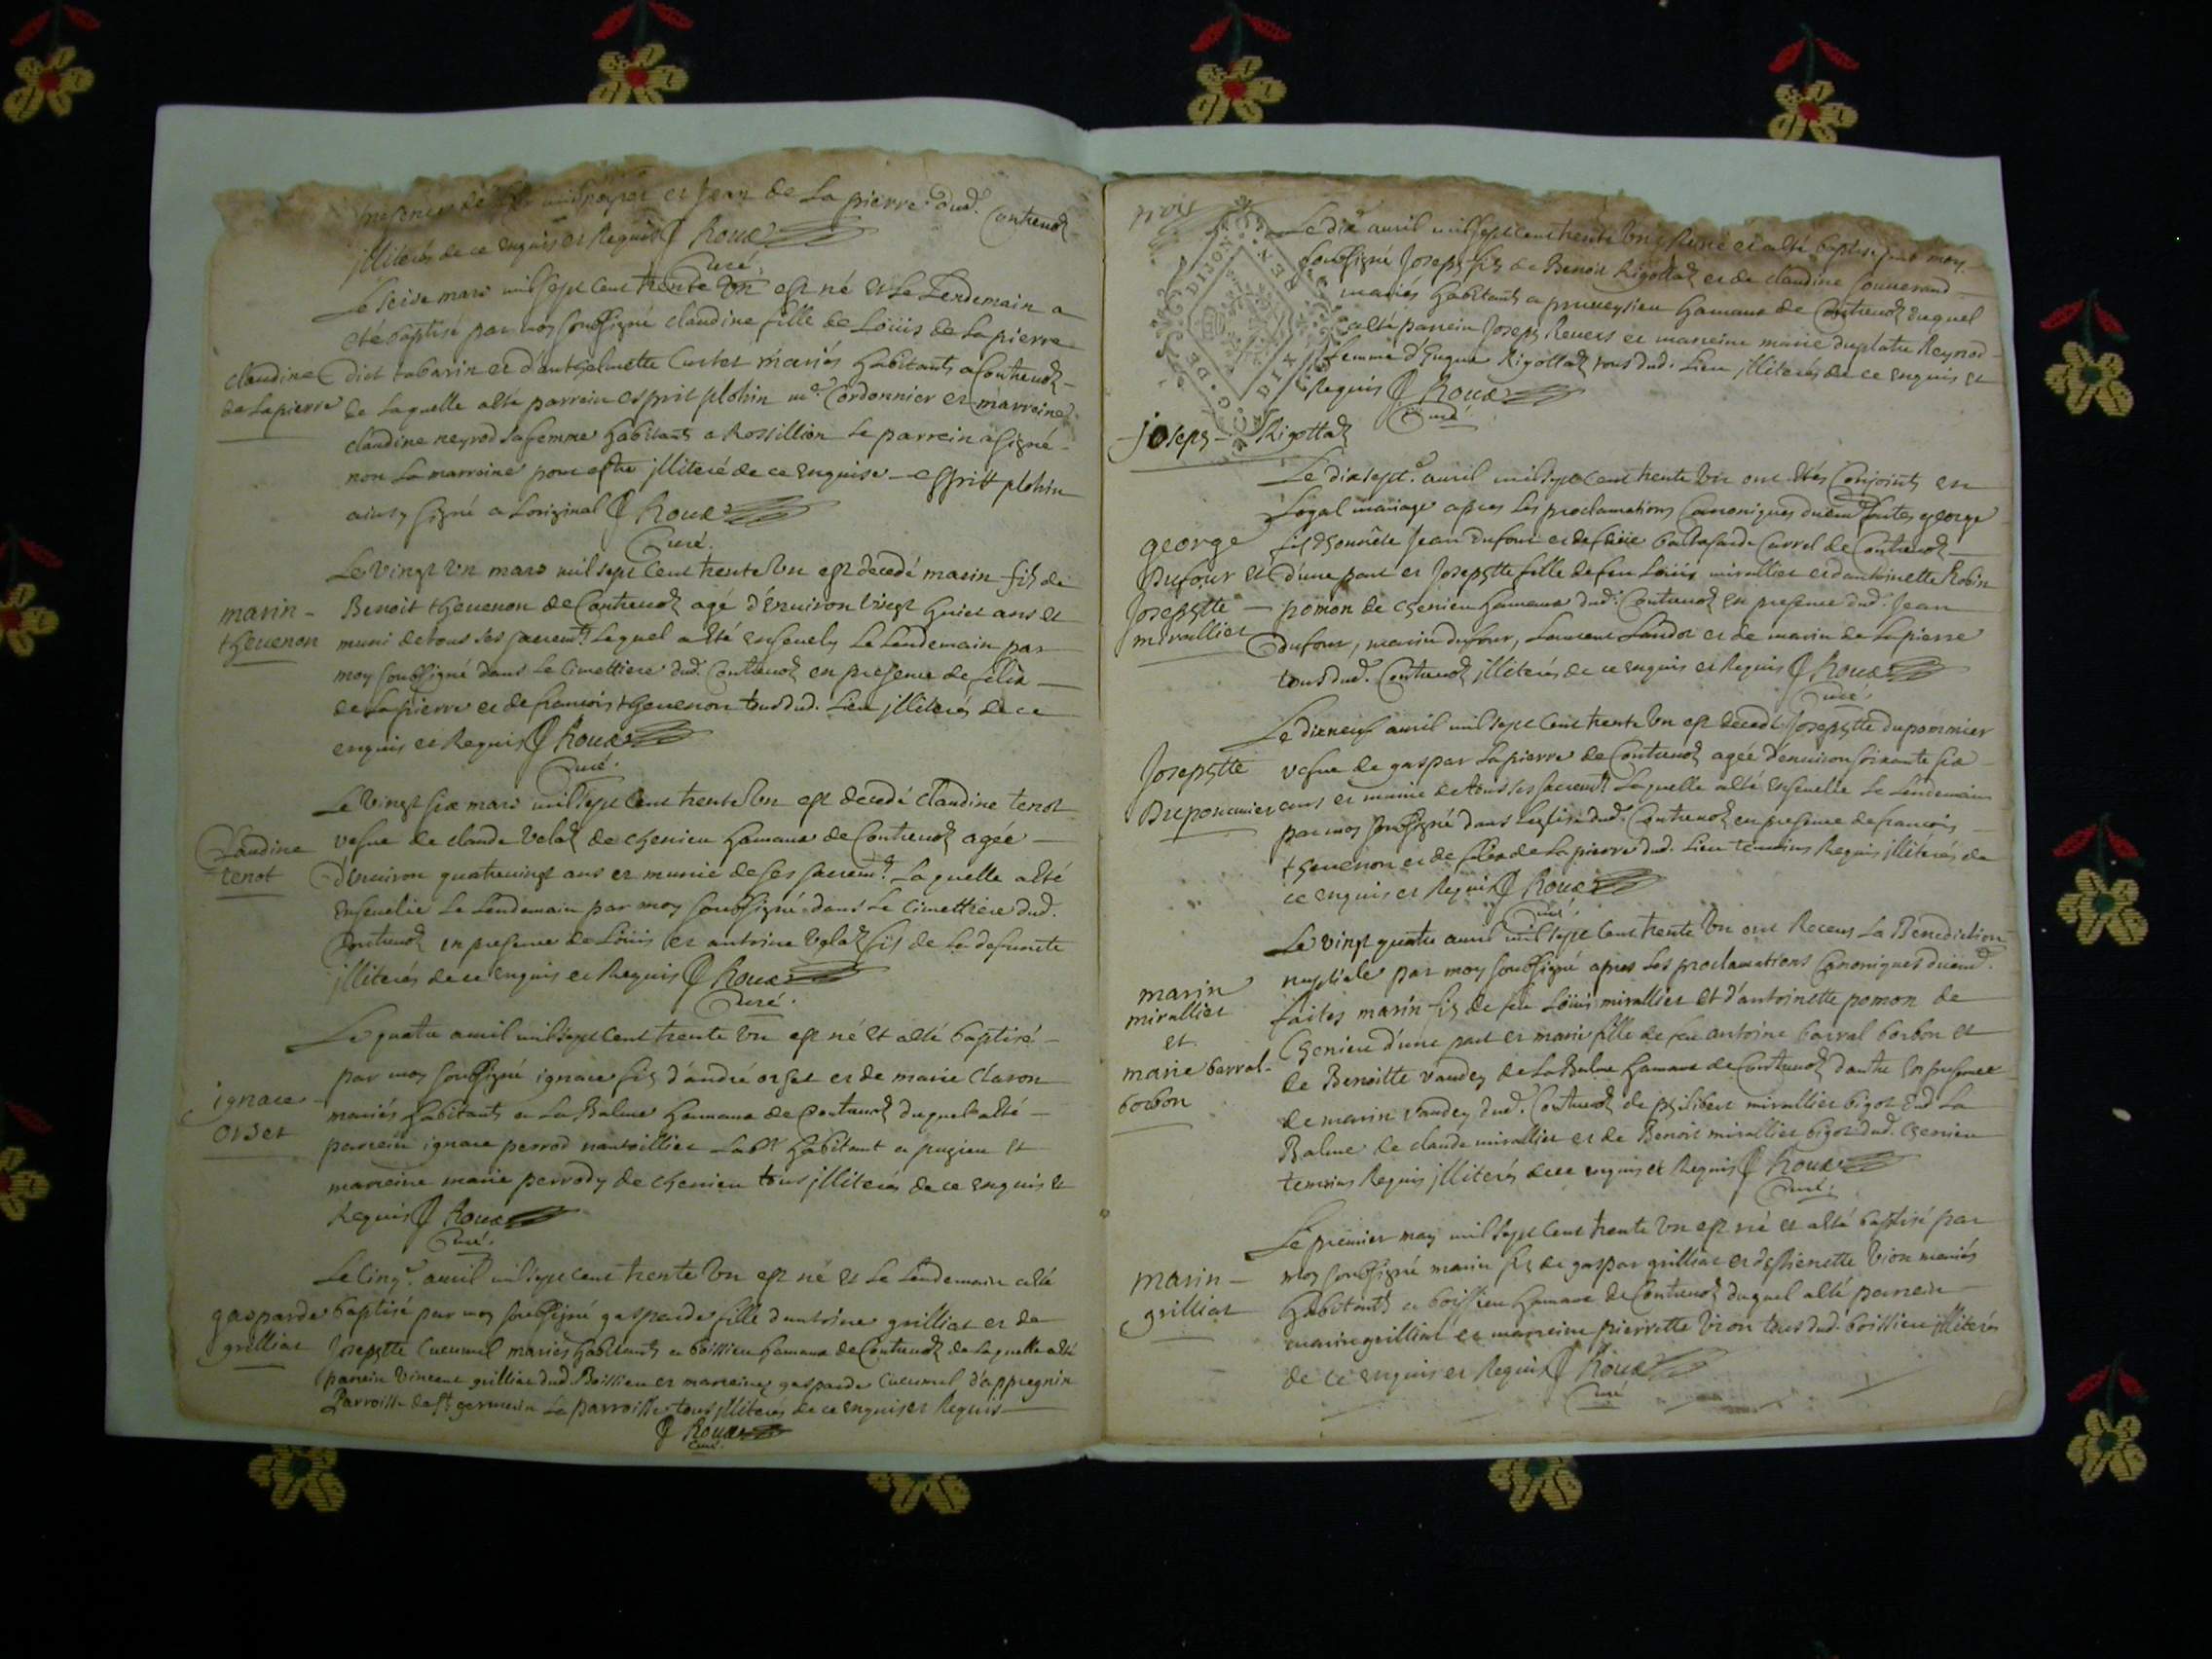 et Jean de La pierre dud. Contrevoz
jlliterés de ce enquis et Requis Roux
Curé.
Le seise mars mil sept cent trente Vn est né et Le Lendemain a
eté baptisé par moy soubsigné claudine fille de Loüis de La pierre
claudine de La pierre
dict tabarin et d'anthelmette Curtet mariés habitants a Contrevoz
de Laquelle a été parrein esprit plohin me. Cordonnier et marreine
claudine neyrod sa femme habitants a Rossillion Le parrein a signé
non La marreine pour estre jlliteré de ce enquise - esprit plohin
ainsy signé a Loriginal Roux
Curé.
Le vingt vn mars mil sept cent trente Vn est decedé marin fils de
marin thevenon
Benoit thevenon de Contrevoz agé d'environ vingt huict ans et
muni de tous ses sacremts. Lequel a été ensevely Le Lendemain par
moy soubsigné dans Le Cimettiere dud. Contrevoz en presence de felix
de La pierre et de francois thevenon tous dud. Lieu jlliterés de ce
enquis et Requis Roux
Curé.
Le vingt six mars mil sept cent trente Vn est decedé claudine tenot
Claudine tenot
vefue de claude Velat de chenieu hameau de Contrevoz agée
d'environ quatrevingt ans et munie de ses sacremts. Laquelle a été
ensevelie Le Lendemain par moy soubsigné dans Le Cimettiere dud.
Contrevoz en presence de Loüis et antoine Velat fils de La defuncte
jlliterés de ce enquis et Requis Roux
Curé.
Le quatre avril mil sept cent trente Vn est né et a été baptisé
par moy soubsigné ignace fils d'andré orset et de marie Claron
ignace orset
mariés habitants a La Balme hameau de Contrevoz duquel a été
parrein ignace perrod nantoillier Labr. habitant a pugieu et
marreine marie perrody de chenieu tous jlliterés de ce enquis et
Requis Roux
Curé.
Le Cinq. avril mil sept cent trente Vn est né et Le Lendemain a été
gasparde grilliat
baptisé par moy soubsigné gasparde fille d'antoine grilliat et de
Josephte Cucumel mariés habitants a boissieu hameau de Contrevoz de Laquelle a été
parrein Vincent grilliat dud. Boissieu et marreine gasparde Cucumel d'appregnin
Parroisse de st. germain La parroisse tous jlliterés de ce enquis et Requis
Roux
Curé.
trois
GEN. DE DIJON
Le dix avril mil sept cent trente Vn est né et a été baptisé par moy
soubsigné Joseph fils de Benoit Rigottaz et de claudine Souuerand
mariés habitants a pruveysieu hameau de Contrevoz duquel
a été parrein Joseph Reuers et marreine marie duplatre Reyrod
femme d'hugue Rigottaz tous dud. Lieu jlliterés de ce enquis et
Requis Roux
Curé.
joseph Rigottaz
Le dix sept. avril mil sept cent trente Vn ont étés Conjoints en
Legal mariage apres Les proclamations Canoniques faites george
george Dufour et Josephte mirallier
fils d'honnête Jean Dufour et de balthasarde Carrel de Contrevoz
d'une part et Josephte fille de feu Loüis mirallier et d'antoinette Robin
pomon de chenieu hameau dud. Contrevoz en presence dud. Jean
Dufour, marin dufour, Laurent Landoz et de marin de La pierre
tous dud. Contrevoz jlliterés de ce enquis et Requis Roux
Curé.
Le dix neuf avril mil sept cent trente Vn est decedé Josephte dupommier
Josephte Dupommier
vefue de gaspar Lapierre de Contrevoz agée d'environ soixante six
ans et munie de tous ses sacremts. Laquelle a été ensevelie Le Lendemain
par moy soubsigné dans Leglise dud. Contrevoz en presence de francois
thevenon et de felix de La pierre dud. Lieu temoins Requis jlliterés de
ce enquis et Requis Roux
Curé.
Le vingt quatre avril mil sept cent trente Vn ont Receus La Benediction
nuptiale par moy soubsigné apres Les proclamations Canoniques
marin mirallier et marie barral borbon
faites marin fils de feu Loüis mirallier et d'antoinette pomon de
Chenieu d'une part et marie fille de feu antoine barral borbon et
de Benoitte Vaudey de La Balme hameau de Contrevoz d'autre en presence
de marin Vaudey dud. Contrevoz de philibert mirallier bigot dud. La
Balme de claude mirallier et de Benoit mirallier bigot dud. Chenieu
temoins Requis jlliterés de ce enquis et Requis Roux
Curé.
Le premier may mil sept cent trente Vn est né et a été baptisé par
marin grilliat
moy soubsigné marin fils de gaspar grilliat et d'estienette Vion mariés
habitants a boissieu hameau de Contrevoz duquel a été parrein
marin grilliat et marreine pierrette Vion tous dud. boissieu jlliterés
de ce enquis et Requis Roux
Curé